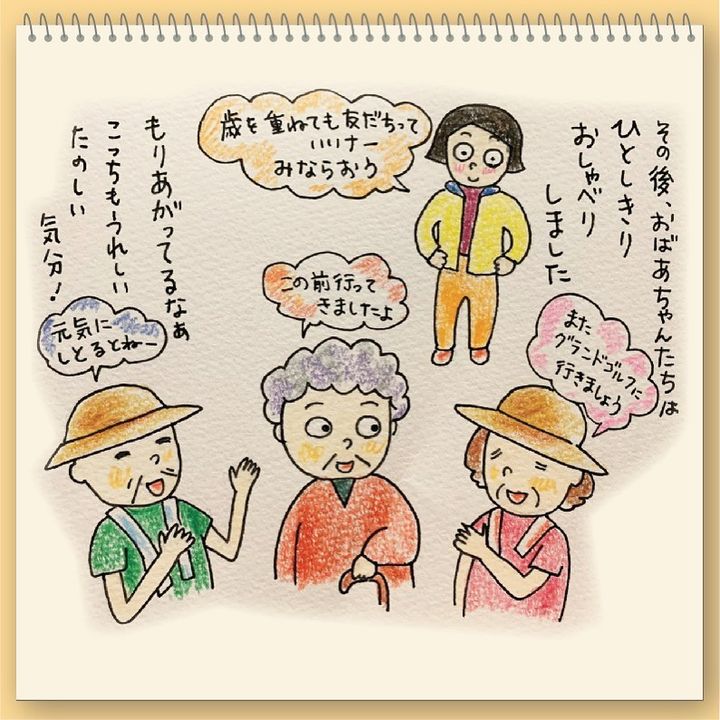 その後、おばあちゃんたちは
ひとしきり
おしゃべり
しました
歳を重ねても友だちって
いいナー
みならおう
また
グランドゴルフに
行きましょう
この前行って
きましたよ
元気に
しとるとねー
もりあがってるなぁ
こっちもうれしい
たのしい
気分!